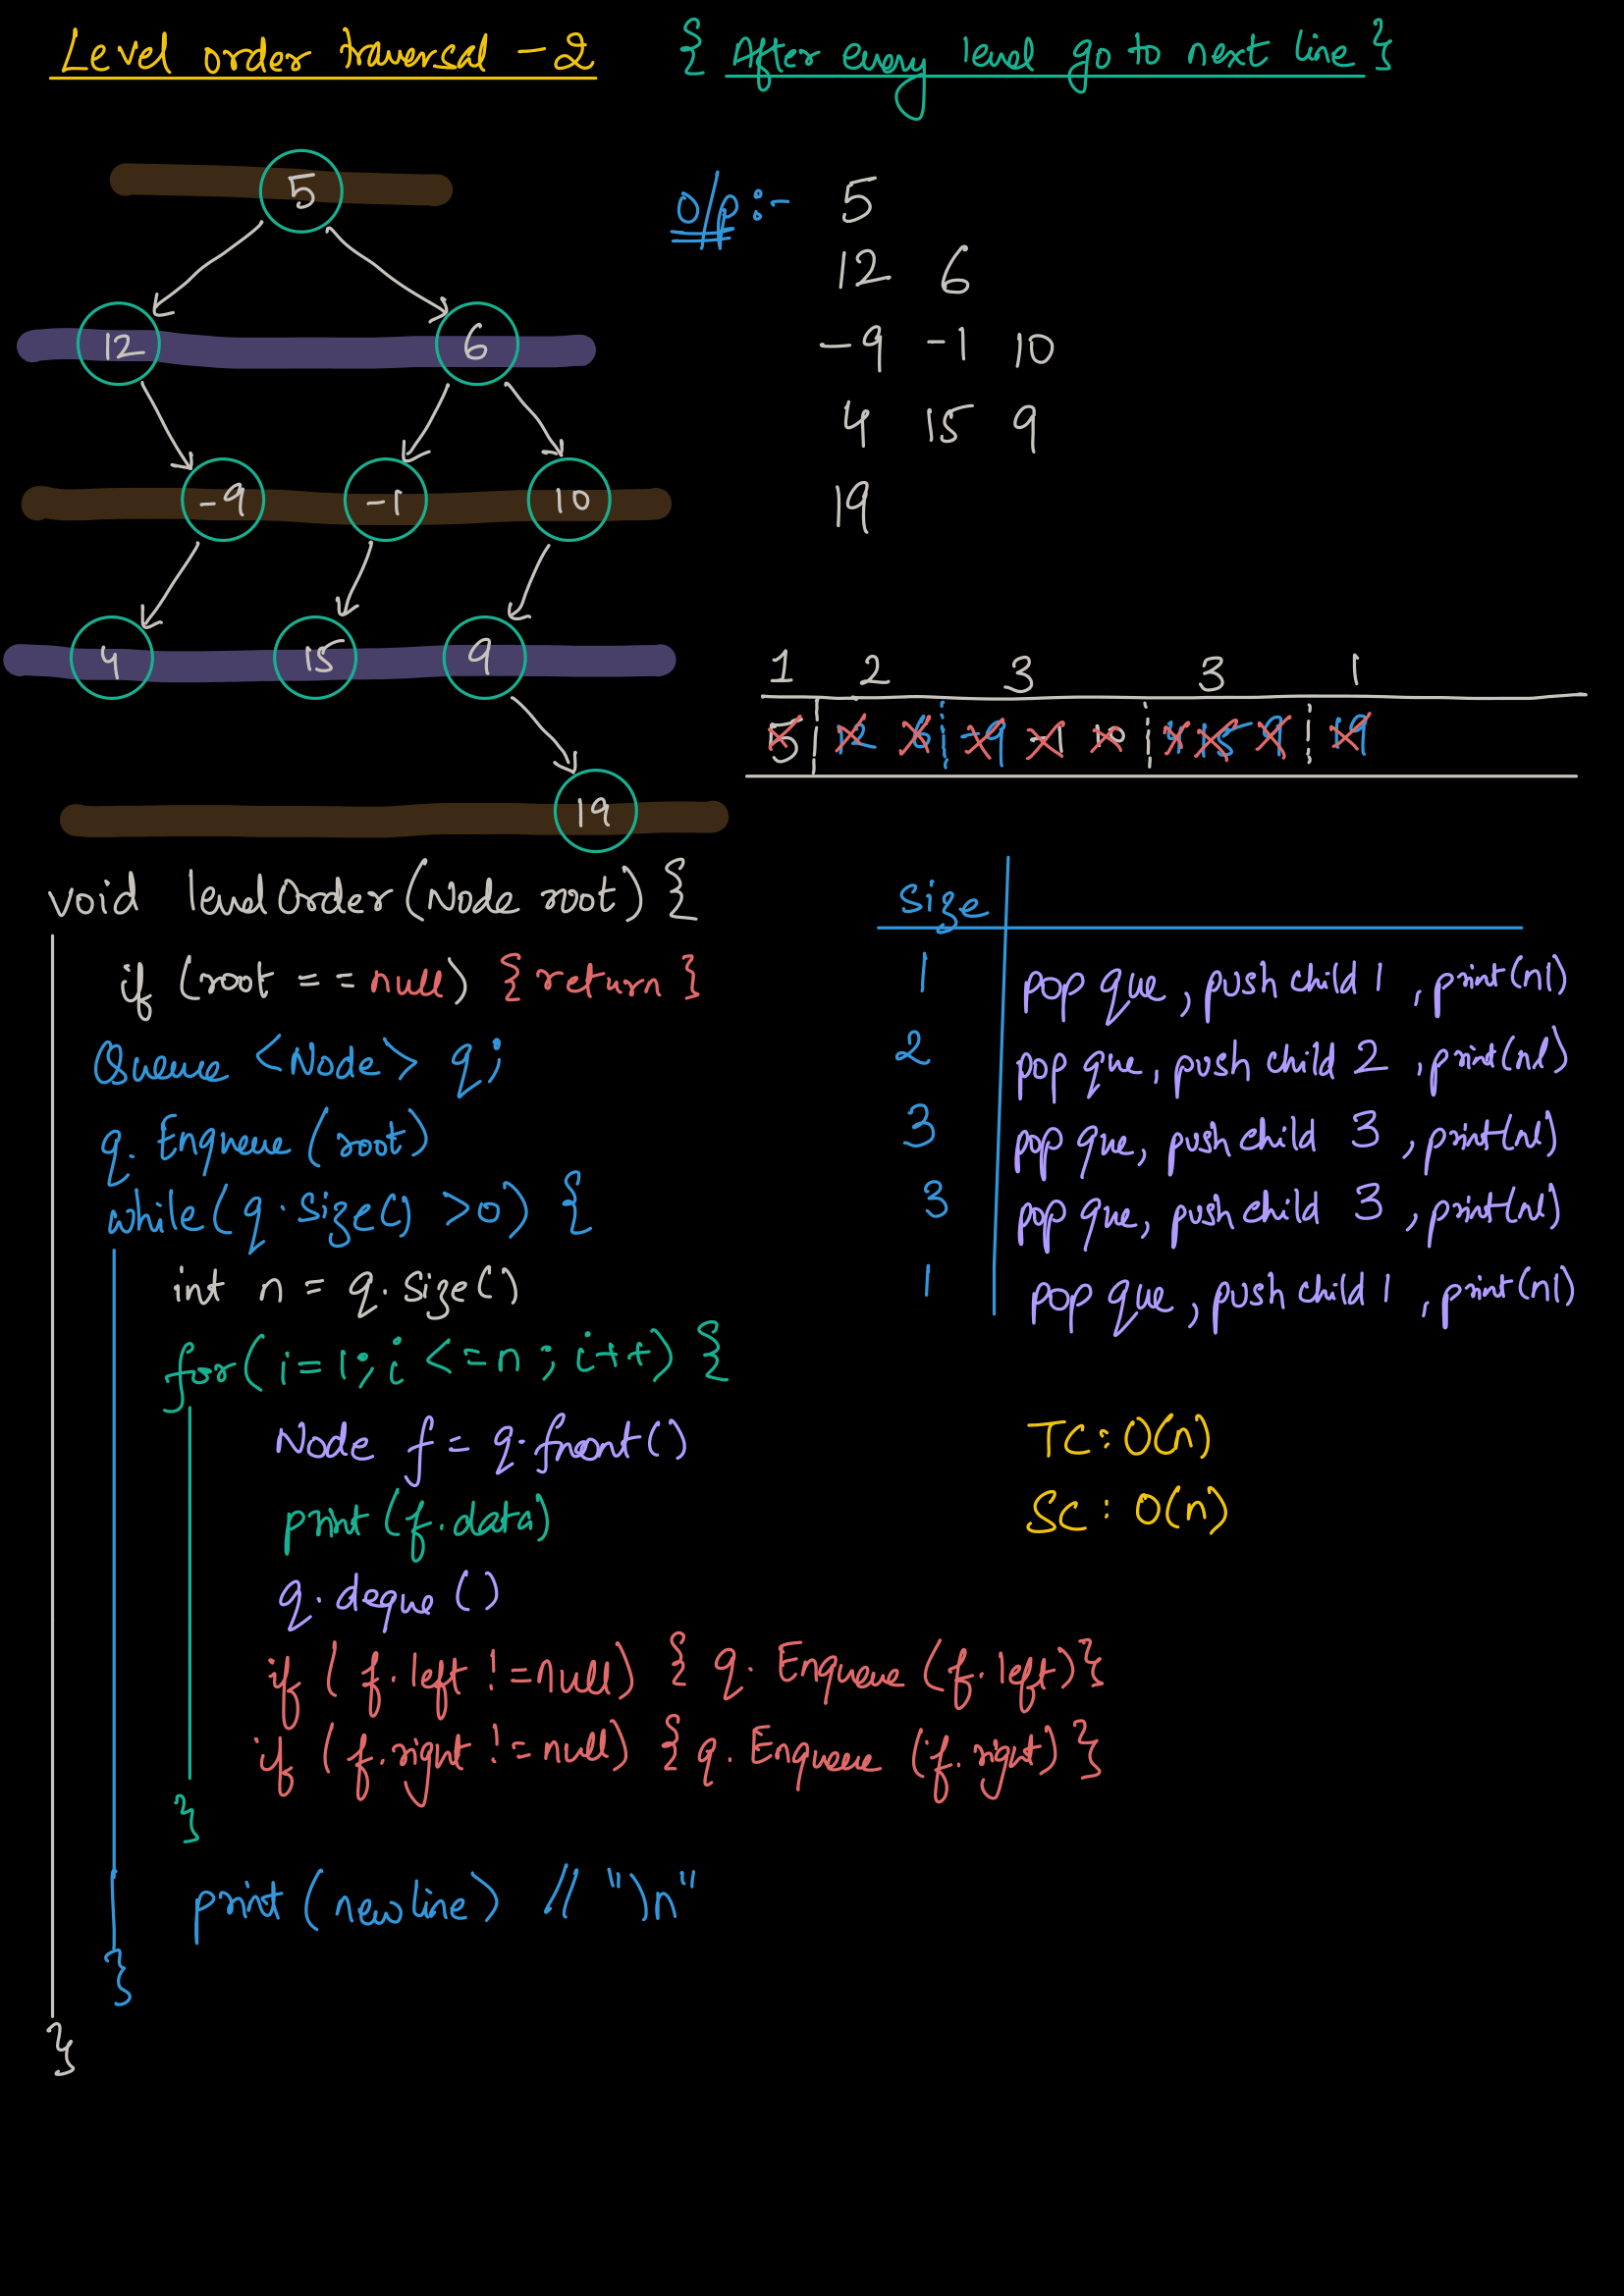 Level order traversal - 2 { After every level go to next line }
5
12 6
-9 -1 10
4 15 9
19
o/p :- 5
12 6
-9 -1 10
4 15 9
19
1 2 3 3 1
5 12 6 -9 -1 10 4 15 9 19
void levelOrder (Node root) {
if (root == null) { return }
Queue <Node> q;
q. Enqueue (root)
while (q.size() >0) {
int n = q.size()
for( i=1; i <=n ; i++) {
Node f = q.front()
print (f.data)
q. deque ()
if ( f.left !=null) { q. Enqueue (f.left) }
if ( f.right != null) { q. Enqueue (f.right) }
}
print (new line) // "\n"
}
}
size
1 pop que, push child 1, print(nl)
2 pop que, push child 2, print(nl)
3 pop que, push child 3, print(nl)
3 pop que, push child 3, print(nl)
1 pop que, push child 1, print(nl)
TC: O(n)
SC: O(n)